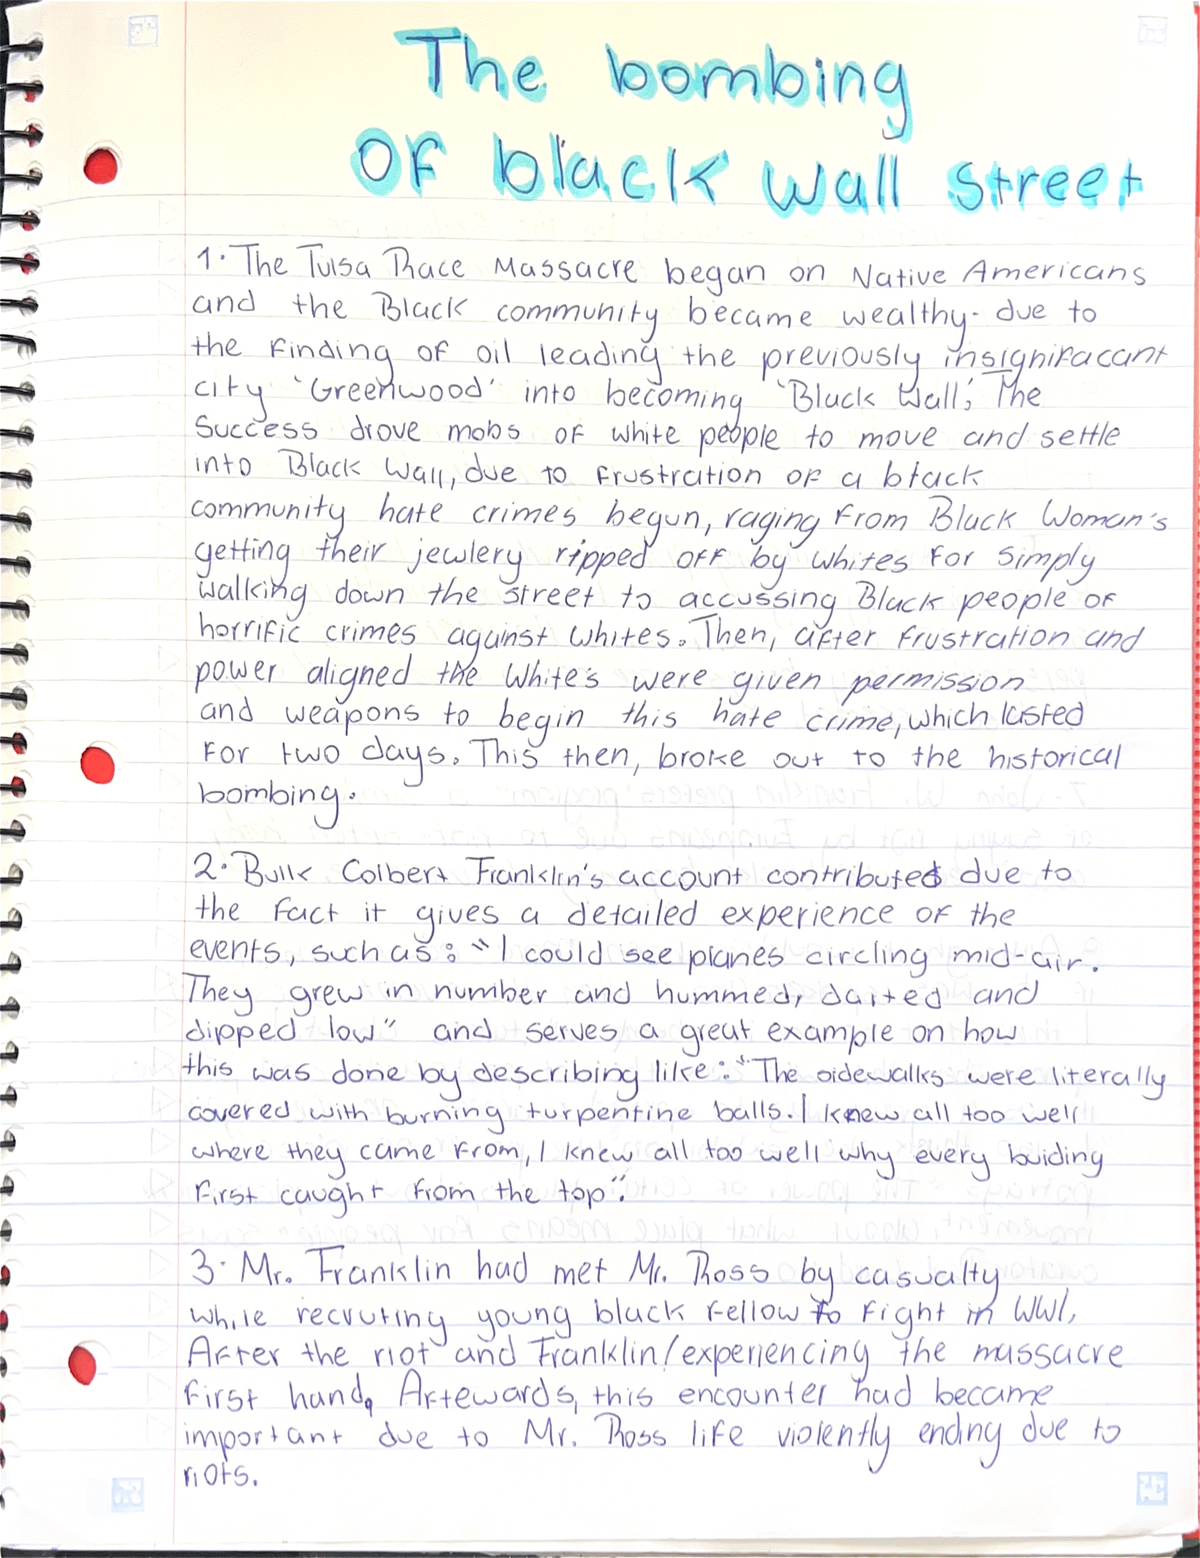 The bombing
OF black Wall Street
1. The Tulsa Race Massacre began on Native Americans
and the Black community became wealthy. due to
the Finding of oil leading the previously insignifacant
city 'Greenwood' into becoming 'Black Wall'; The
Success drove mobs of white people to move and settle
into Black Wall, due to frustration of a black
community hate crimes begun, raging from Black Woman's
getting their jewlery ripped off by Whites for simply
walking down the street to accussing Black people of
horrific crimes against whites. Then, after frustration and
power aligned the White's were given permission
and weapons to begin this hate crime, which lasted
For two days. This then, broke out to the historical
bombing.
2. Bulk Colbert Franklin's account contributes due to
the fact it gives a detailed experience of the
events, such as: "I could see planes circling mid-air.
They grew in number and hummed, darted and
dipped low" and serves a great example on how
this was done by describing like: "The sidewalks were literally
covered with burning turpentine balls. I knew all too well
where they came from, I knew all too well why every buiding
First caught from the top".
3. Mr. Franklin had met Mr. Ross by casualty
while recruting young black fellow to fight in WWI,
After the riot and Franklin/experiencing the massacre
first hand, Aftewards, this encounter had became
important due to Mr. Ross life violently ending due to
riots.